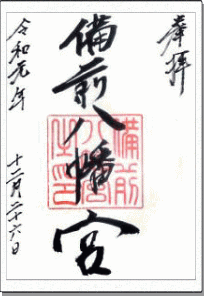 奉拝
備前八幡宮
備前
八宮
之印
令和元年
十二月二十六日